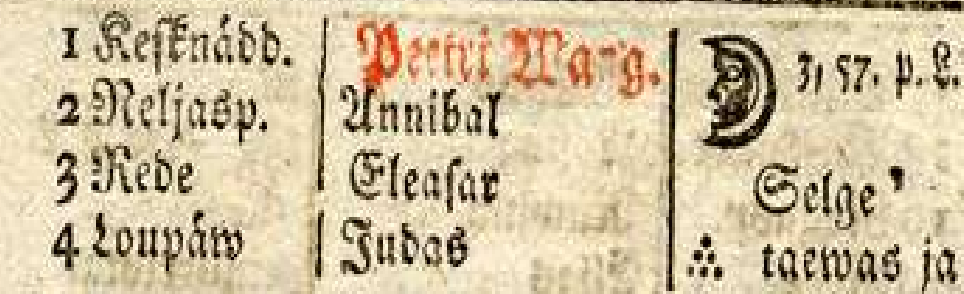 1 Keſknádd. Peetri Wang. 3, 57. p. L.
2 Neljasp. Annibal
3 Rede Eleaſar Selge
4 Loupáw Judas ∴ taewas ja